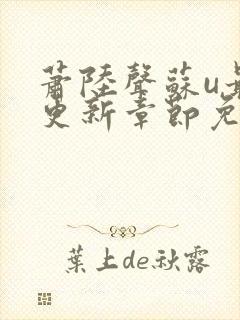 蕭陸聲蘇u最
更新章節免
葉上de秋露